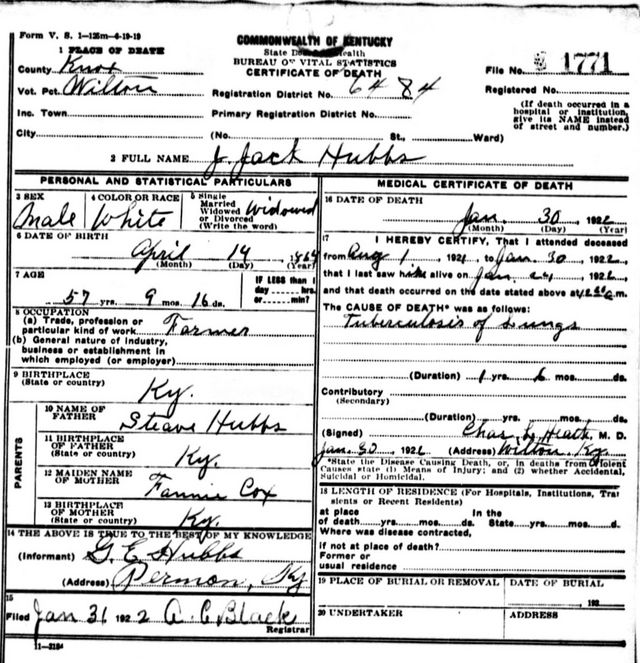 Form V. S. 1-125m-6-19-19
COMMONWEALTH OF KENTUCKY
State Health
BUREAU OF VITAL STATISTICS
CERTIFICATE OF DEATH
1 PLACE OF DEATH
County Knox
File No. 1771
Vot. Pct. Wilton
Registration District No. 6484
Registered No.
Inc. Town
Primary Registration District No.
(If death occurred in a
hospital or institution,
give its NAME instead
of street and number.)
City (No. St., Ward)
2 FULL NAME J. Jack Hubbs
PERSONAL AND STATISTICAL PARTICULARS
3 SEX Male
4 COLOR OR RACE White
5 Single
Married
Widowed
or Divorced
(Write the word) Widowed
6 DATE OF BIRTH
April 14 1864
(Month) (Day) (Year)
7 AGE
57 yrs. 9 mos. 16 ds.
IF LESS than 1
day hrs.
or min?
8 OCCUPATION
(a) Trade, profession or
particular kind of work Farmer
(b) General nature of industry,
business or establishment in
which employed (or employer)
9 BIRTHPLACE
(State or country) Ky.
PARENTS
10 NAME OF
FATHER Steave Hubbs
11 BIRTHPLACE
OF FATHER
(State or country) Ky.
12 MAIDEN NAME
OF MOTHER Fannie Cox
13 BIRTHPLACE
OF MOTHER
(State or country) Ky.
14 THE ABOVE IS TRUE TO THE BEST OF MY KNOWLEDGE
(Informant) G. E. Hubbs
(Address) Permon, Ky
15
Filed Jan 31 1922 A. C. Black
Registrar
11-3184
MEDICAL CERTIFICATE OF DEATH
16 DATE OF DEATH
Jan. 30, 1922
(Month) (Day) (Year)
17 I HEREBY CERTIFY, That I attended deceased
from Aug 1 1921, to Jan. 30, 1922
that I last saw him alive on Jan. 1922
and that death occurred on the date stated above at m.
The CAUSE OF DEATH* was as follows:
Tuberculosis of Lungs
(Duration) 1 yrs. 6 mos. ds.
Contributory
(Secondary)
(Duration) yrs. mos. ds.
(Signed) Chas. L. Heath, M. D.
Jan. 30, 1922 (Address) Wilton, Ky.
*State the Disease Causing Death, or, in deaths from Violent
Causes state (1) Means of Injury; and (2) whether Accidental,
Suicidal or Homicidal.
18 LENGTH OF RESIDENCE (For Hospitals, Institutions, Tran
sients or Recent Residents)
at place In the
of death yrs. mos. ds. State yrs. mos. d.
Where was disease contracted,
if not at place of death?
Former or
usual residence
19 PLACE OF BURIAL OR REMOVAL
DATE OF BURIAL
192
20 UNDERTAKER
ADDRESS